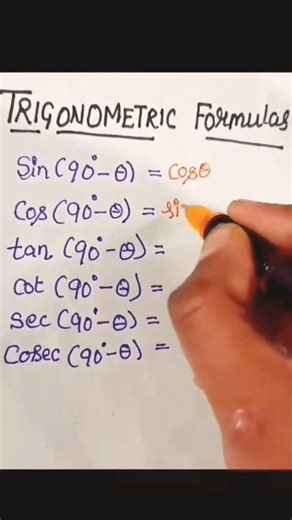 TRIGONOMETRIC Formulas
Sin(90°-θ) = Cosθ
Cos(90°-θ) = si
tan(90°-θ) =
Cot(90°-θ) =
Sec(90°-θ) =
Cosec(90°-θ) =